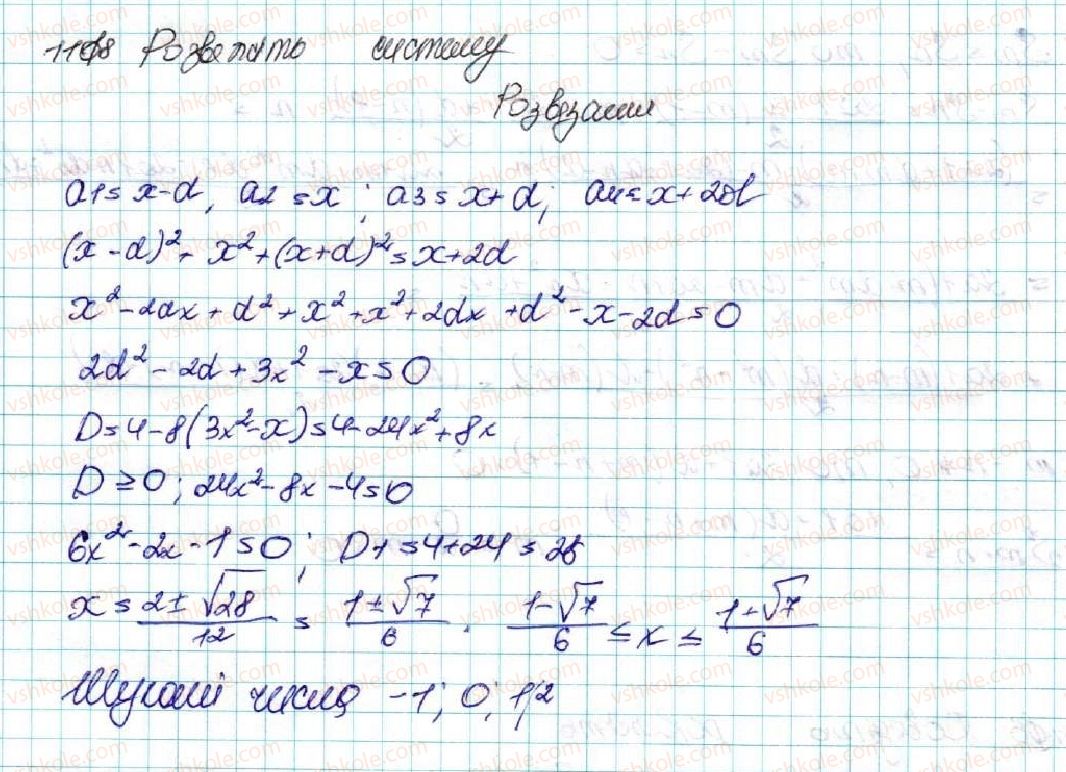 1108 Розвязать систему
Розвязання
a1 = x-d, a2 = x; a3 = x+d; a4 = x+2d
(x-d)² + x² + (x+d)² = x+2d
x² - 2dx + d² + x² + x² + 2dx + d² - x - 2d = 0
2d² - 2d + 3x² - x = 0
D = 4 - 8(3x² - x) = 4 - 24x² + 8x
D ≥ 0; 24x² - 8x - 4 = 0
6x² - 2x - 1 = 0; D1 = 4 + 24 = 28
x = (2 ± √28)/12 = (1 ± √7)/6. (1-√7)/6 ≤ x ≤ (1+√7)/6
Шукані числа -1; 0; 1; 2